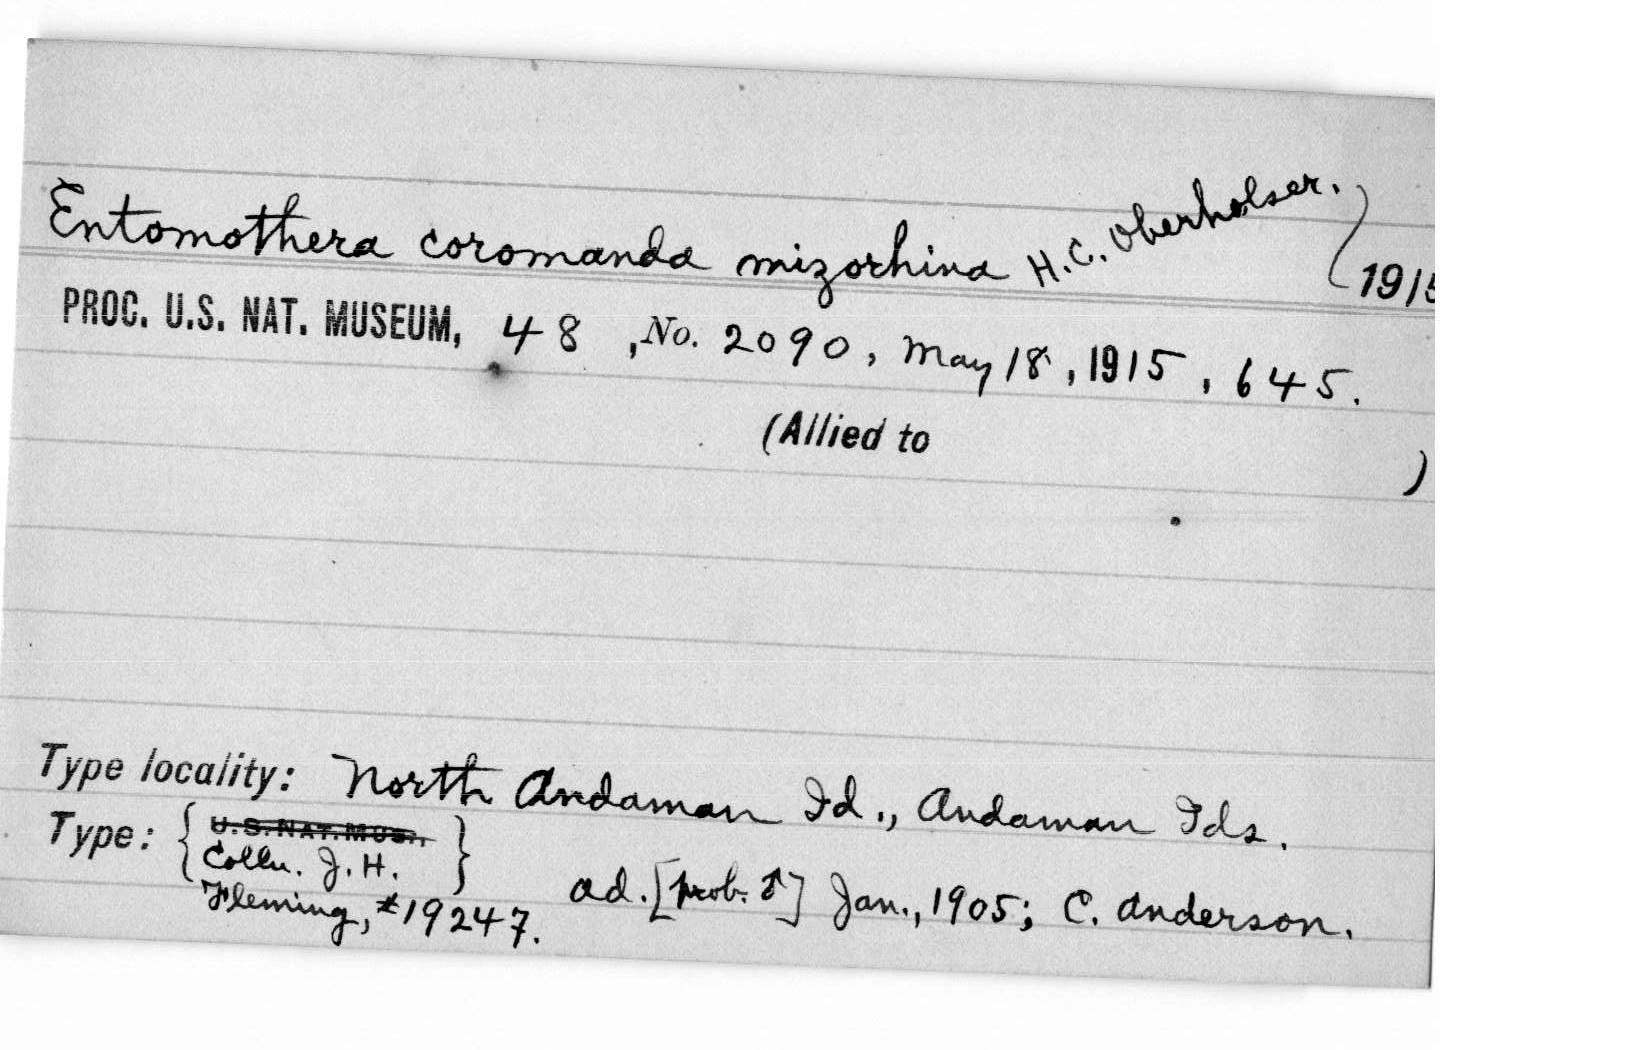 Entomothera coromanda mizorhina H.C. Oberholser.
1915
PROC. U.S. NAT. MUSEUM, 48, No. 2090, May 18, 1915, 645.
(Allied to )
Type locality: North Andaman Id., Andaman Ids.
Type: { U.S. NAT. MUS., }
Colln. J. H.
Fleming, #19247. ad. [prob. ♂] Jan., 1905; C. Anderson.